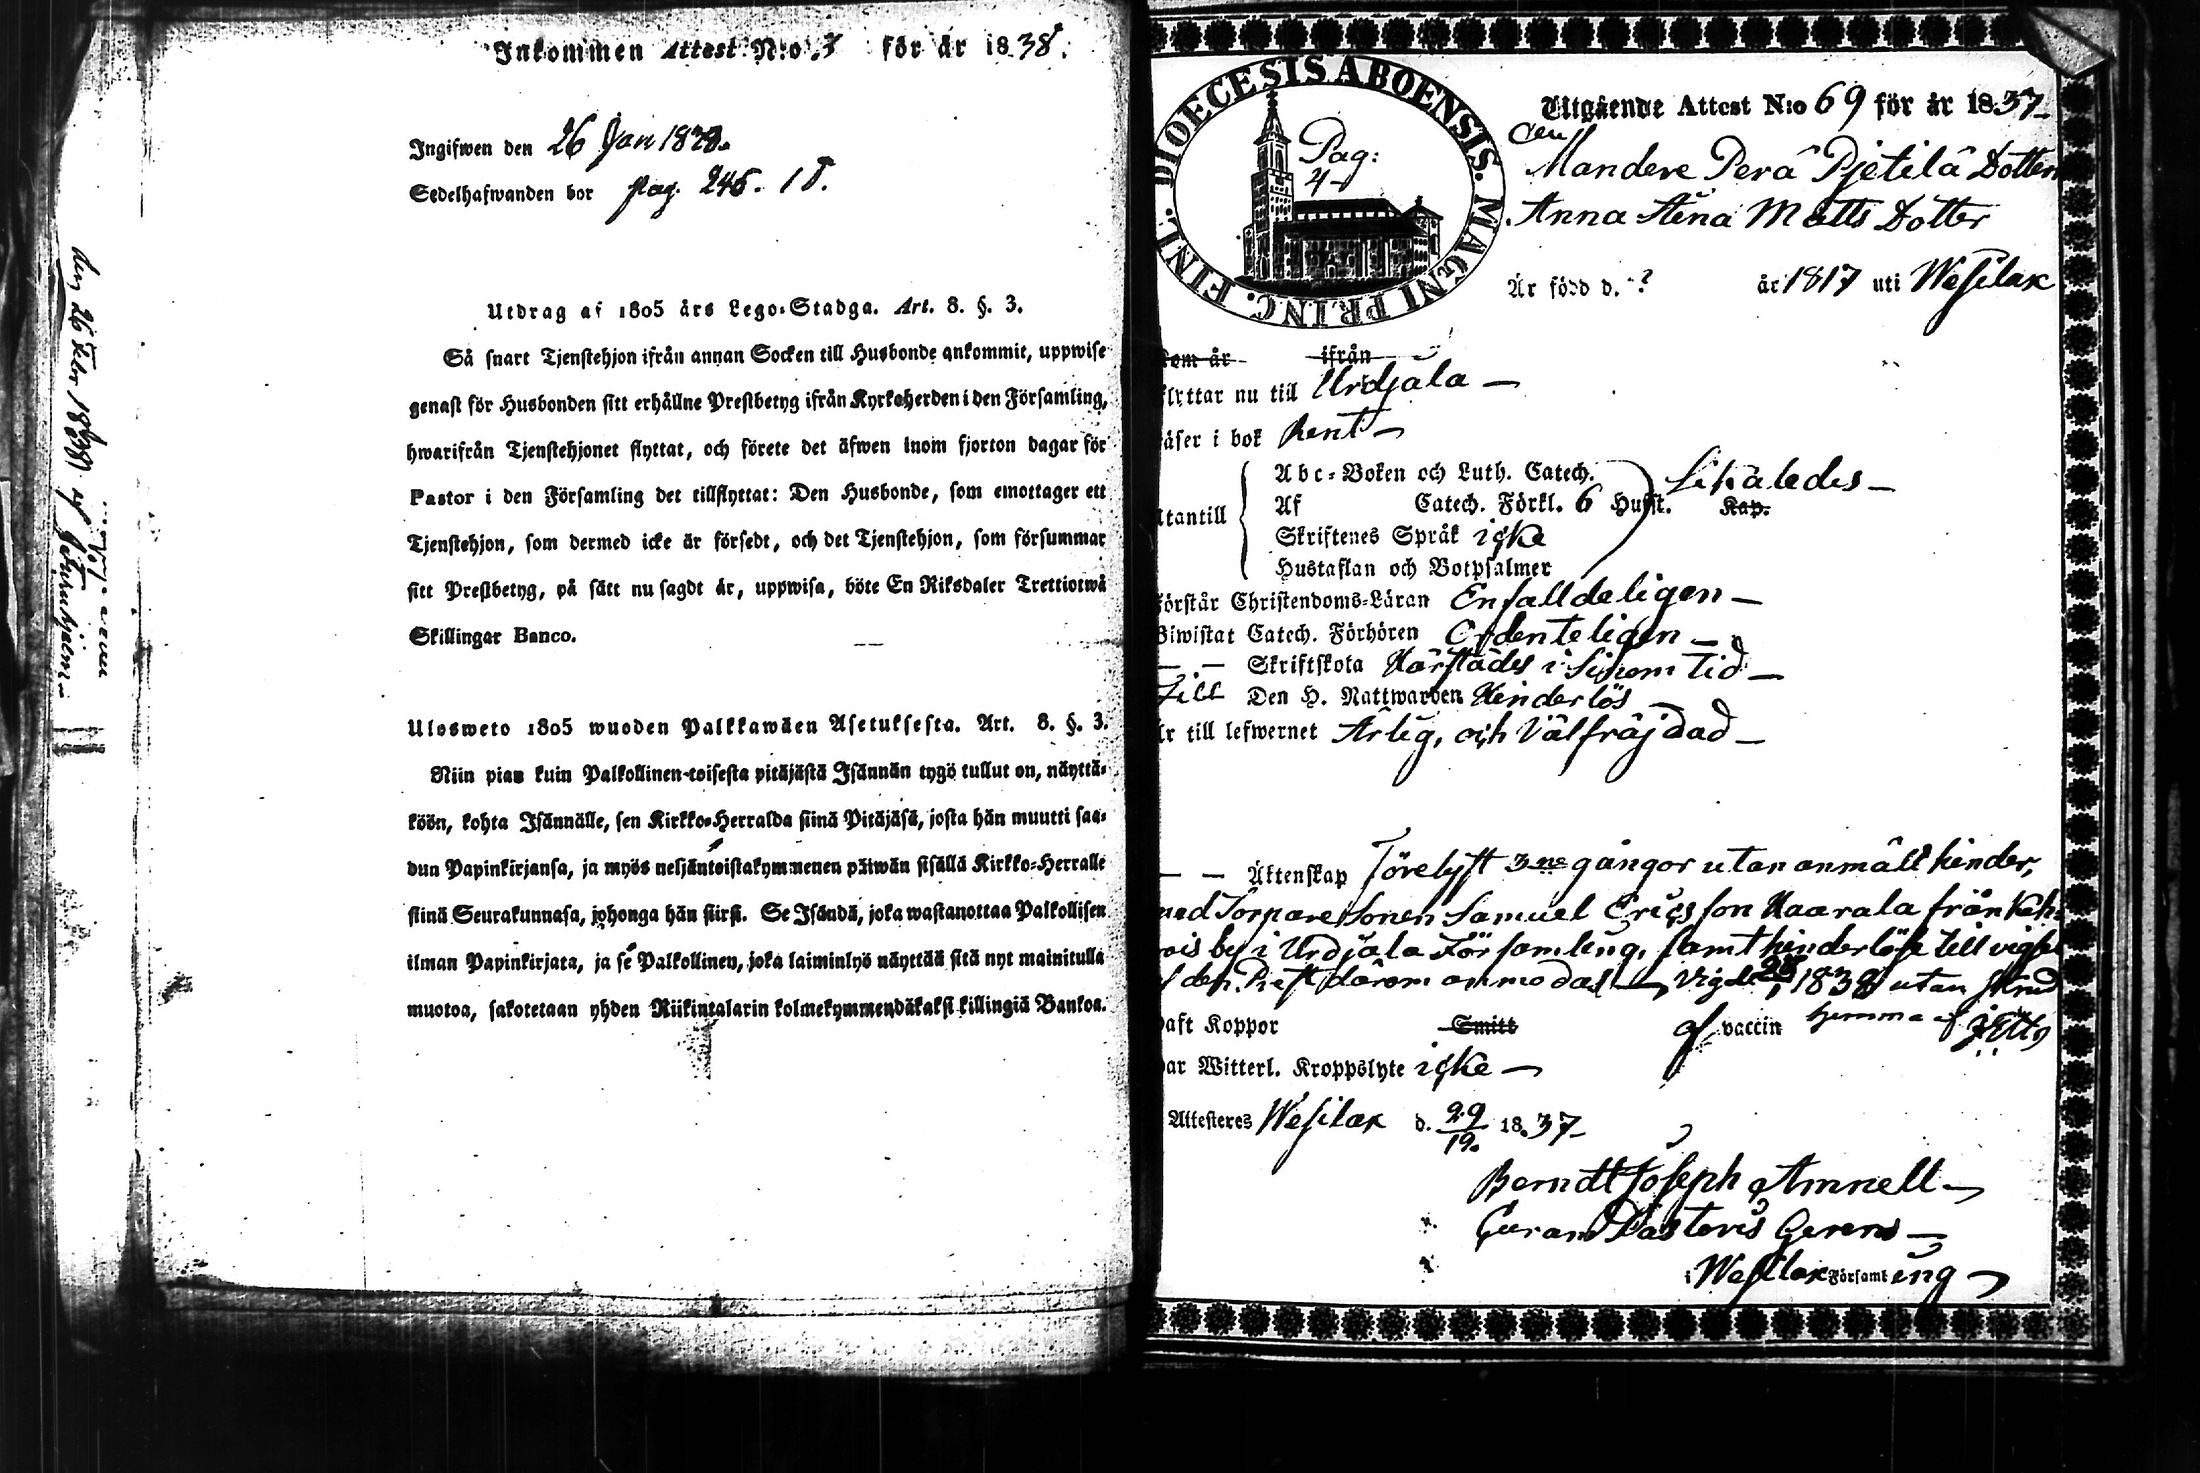 Inkommen Attest N:o 3 för år 1838.
Ingifwen den 26 Jan 1838.
Sedelhafwanden bor pag. 245.
Utdrag af 1805 års Lego-Stadga. Art. 8. §. 3.
Så snart Tjenstehjon ifrån annan Socken till Husbonde ankommit, uppwise
genast för Husbonden sitt erhållne Prestbetyg ifrån Kyrkoherden i den Församling,
hwarifrån Tjenstehjonet flyttat, och förete det äfwen inom fjorton dagar för
Pastor i den Församling det tillflyttat: Den Husbonde, som emottager ett
Tjenstehjon, som dermed icke är försedt, och det Tjenstehjon, som försummar
sitt Prestbetyg, på sätt nu sagdt är, uppwisa, böte En Riksdaler Trettiotwå
Skillingar Banco.
Ulosweto 1805 wuoden Palkkawäen Asetuksesta. Art. 8. §. 3.
Niin pian kuin Palkollinen toisesta pitäjästä Isännän tygö tullut on, näyttä-
köön, kohta Isännälle, sen Kirkko-Herralda siinä Pitäjäsä, josta hän muutti saa-
dun Papinkirjansa, ja myös neljäntoistakymmenen päiwän sisällä Kirkko-Herralle
siinä Seurakunnasa, johonga hän siirsi. Se Isändä, joka wastanottaa Palkollisen
ilman Papinkirjata, ja se Palkollinen, joka laiminlyö näyttää sitä nyt mainitulla
muotoa, sakotetaan yhden Riikintalarin kolmekymmendäkaksi killingiä Bankoa.
DIOECESIS ABOENSIS. MAGNI PRINC. FINL.
Pag:
4
Utgående Attest N:o 69 för år 1837
Mandere Perä Pjetilä Dotter
Anna Stina Matts Dotter
Är född d. ? år 1817 uti Wesilax
som är ifrån
flyttar nu till Urdjala
läser i bok Rent
Abc-Boken och Luth. Catech. Likaledes
utantill Af Catech. Förkl. 6 Hufst. Kap.
Skriftenes Språk icke
Hustaflan och Botpsalmer
Förstår Christendoms-Läran Enfalldeligen
Biwistat Catech. Förhören Ordenteligen
Skriftskola Härstädes i Sinom tid
Till Den H. Nattwarden Hinderlös
Är till lefwernet Ärlig, och Välfräjdad
Äktenskap förelyst 3ne gångor utan anmält hinder,
med Torpare Sonen Samuel Ericsson Haarala från
by i Urdjala Församling, samt hinderlös till
af den Prest därom anmodas Vigde 1838 utan
haft Koppor Smitt af vaccin hemma af
har Witterl. Kroppslyte icke
Attesteres Wesilax d. 29/19. 1837
Berndt Joseph Amnell
Curam Pastoris Gerens
i Wesilax Församling